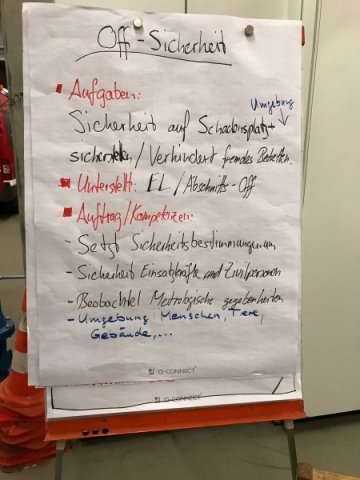 Off-Sicherheit
Aufgaben:
Umgebung
Sicherheit auf Schadensplatz +
sicherstellen / Verhindert fremdes Betreten.
Unterstellt: EL / Abschnitts-Off
Auftrag / Kompetenzen:
- Setzt Sicherheitsbestimmungen um
- Sicherheit Einsatzkräfte und Zivilpersonen
- Beobachtet Metrologische gegebenheiten
- Umgebung: Menschen, Tiere,
Gebäude, ...
Q-CONNECT
Q-CONNECT